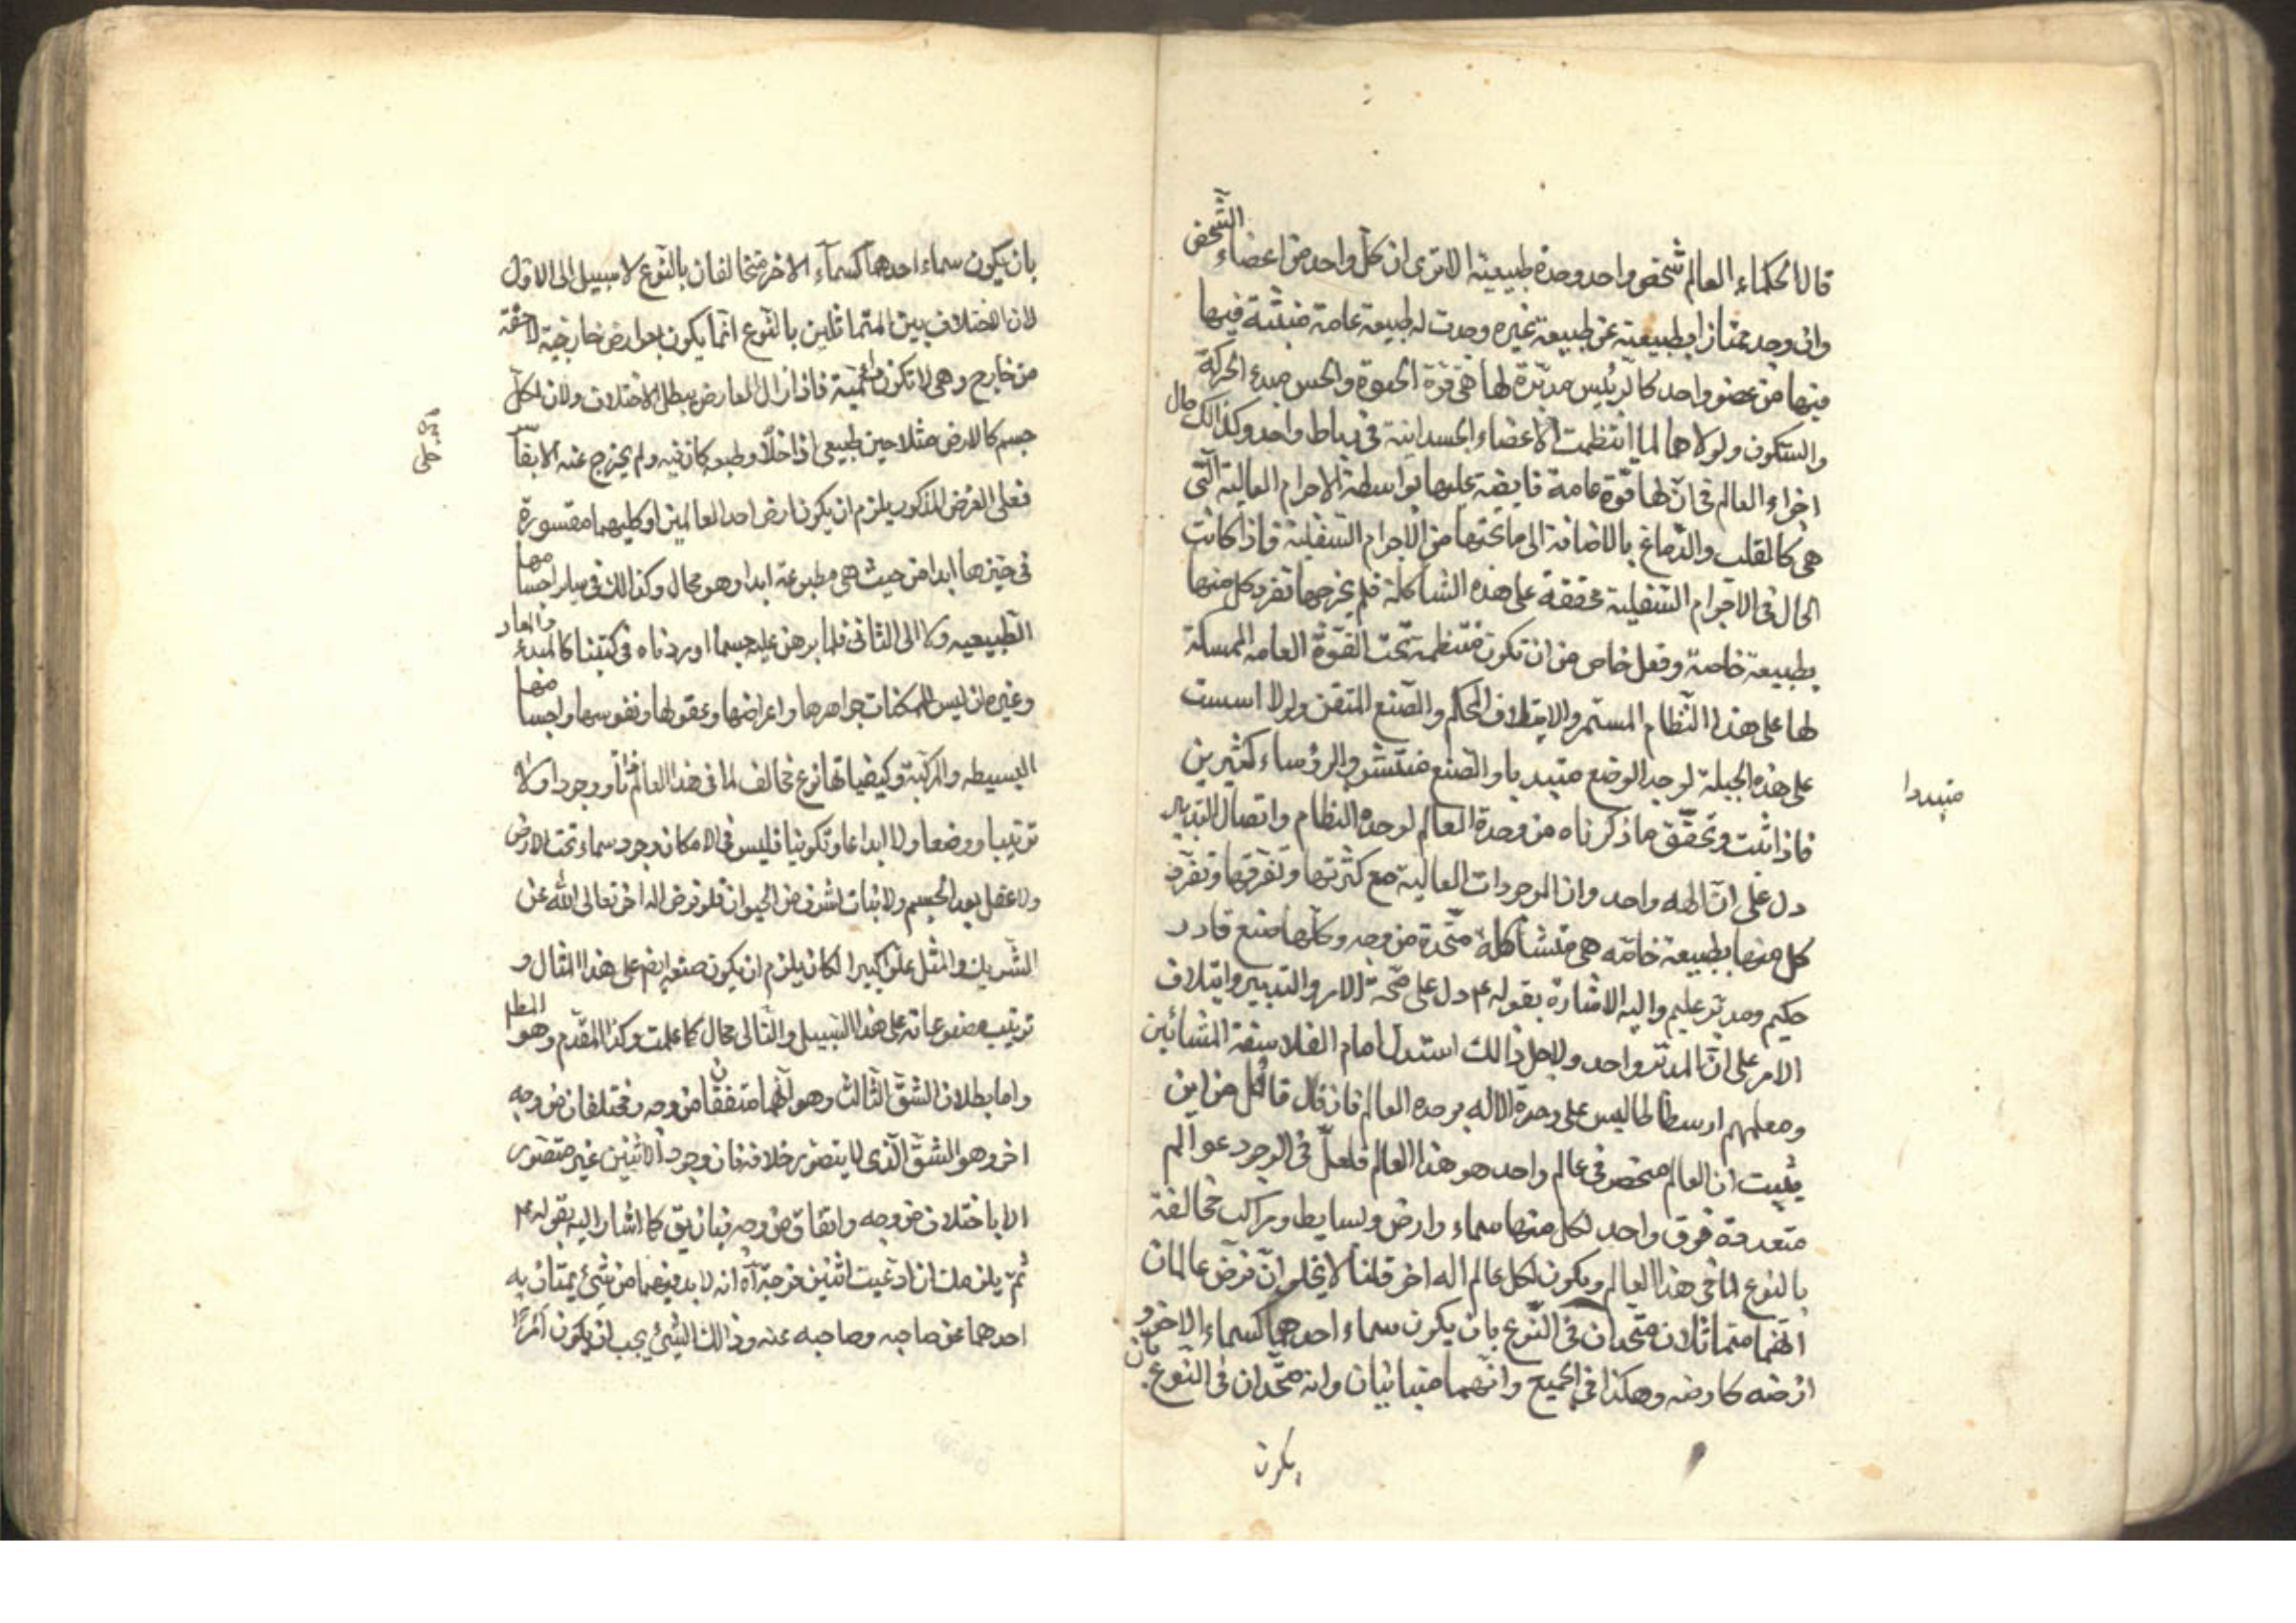 قال الحكماء العالم شخص واحد وحدة طبيعية الا ترى ان كل واحد من اعضاء الشخص
وان وجد ممتازا بطبيعته عن طبيعة غيره وجدت له طبيعة عامة منبثة فيها
فيها من عضو واحد كالرئيس مدبرة لها هى قوة الحيوة والحس مبدء الحركة
والسكون ولولاهما لما انتظمت الاعضاء الجسدانية فى رباط واحد وكذالك حال
اجزاء العالم فى ان لها قوة عامة فايضة عليها بواسطة الاجرام العالية التى
هى كالقلب والدماغ بالاضافة الى ما تحتها من الاجرام السفلية فاذا كانت
الحال فى الاجرام السفلية محققة على هذه الشاكلة فلم يخرجها تفرد كل منها
بطبيعة خاصة وفعل خاص من ان تكون منتظمة تحت القوة العامه الممسكة
لها على هذا النظام المستمر والايتلاف المحكم والصنع المتقن ولولا اسست
على هذه الجبلة لوجد الوضع متبديا والصنع منتشرا والرؤساء كثيرين
متبددا
فاذا ثبت وتحقق ما ذكرناه من وحدة العالم لوحدة النظام واتصال التدبير
دل على ان الهه واحد وان الموجودات العالية مع كثرتها وتفرقها وتفرد
كل منها بطبيعة خاصه هى متشاكلة متحدة من وجه وكلها صنع قادر
حكيم ومدبر عليم واليه الاشارة بقوله ع دل على صحة الامر والتدبير وايتلاف
الامر على ان المدبر واحد ولاجل ذالك استدل امام الفلاسفة المشائين
ومعلمهم ارسطاطاليس على وحدة الاله بوحدة العالم فان قال قائل من اين
يثبت ان العالم منحصر فى عالم واحد هو هذا العالم فلعل فى الوجود عوالم
متعددة فوق واحد لكل منها سماء وارض وبسايط ومراكب مخالفة
بالنوع لما فى هذا العالم ويكون لكل عالم اله اخر قلنا لا يخلو ان فرض عالمان
انهما متماثلان متحدان فى النوع بان يكون سماء احدهما كسماء الاخر و
ارضه كارضه وهكذا فى الجميع وانهما متباينان وانه متحدان فى النوع بان
يكون
بان يكون سماء احدهما كسماء الاخر متخالفان بالنوع لا سبيل الى الاول
لان الاختلاف بين المتماثلين بالنوع انما يكون بعوارض خارجية لاحقة
من خارج وهى لا تكون دائمية فاذا زال العارض بطل الاختلاف ولان لكل
جسم كالارض مثلا حيز طبيعى اذا خلا وطبعه كان فيه ولم يخرج عنه الا بقاسر
فعلى الفرض المذكور يلزم ان يكون ارض احد العالمين او كليهما مقسورة
فى حيزها ابدا من حيث هى مطبوعة ابدا وهو محال وكذالك فى ساير اجسامها
الطبيعيه ولا الى الثانى فلما برهن عليه حسبما اوردناه فى كتبنا كالمبدء والمعاد
وغيره ان ليس للممكنات جواهرها واعراضها وعقولها ونفوسها واجسامها
البسيطه والمركبة وكيفياتها نوع مخالف لما فى هذا العالم ذاتا ووجودا ولا
ترتيبا ووضعا ولا ابداعا وتكوينا فليس فى الامكان وجود سماء تحت الارض
ولا عقل بعد الجسم ولا نبات اشرف من الحيوان فلو فرض اله اخر تعالى الله عن
الشريك والمثل علوا كبيرا لكان يلزم ان يكون صنعه ايضا على هذا المثال و
ترتيب مصنوعاته على هذا السبيل والتالى محال كما علمت وكذا المقدم وهو المطلوب
واما بطلان الشق الثالث وهو انهما متفقان من وجه مختلفان من وجه
اخر وهو الشق الذى لا يتصور خلافه فان وجود الاثنين غير متصور
الا باختلاف من وجه واتفاق من وجه كما اشار اليه بقوله ع
ثم يلزمك ان ادعيت اثنين فرجة اه انه لا بد فيهما من شئ يمتاز به
احدهما عن صاحبه وصاحبه عنه وذالك الشئ يجب ان يكون امرا